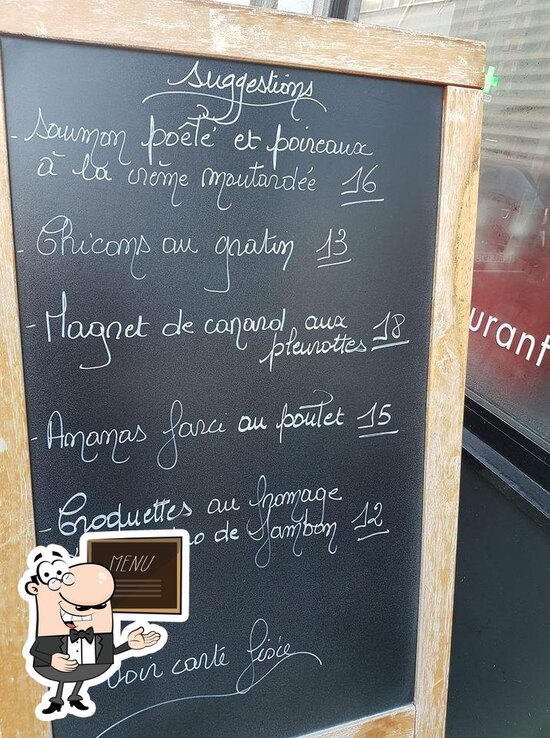 Suggestions
- Saumon poêlé et poireaux
à la crème moutardée 16
- Chicons au gratin 13
- Magret de canard aux
pleurottes 18
- Ananas farci au poulet 15
- Croquettes au fromage
de Jambon 12
MENU
Voir carte fixée
urant